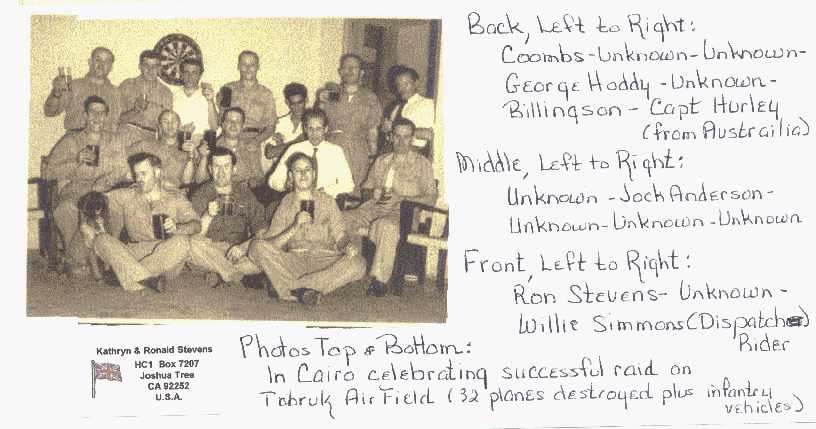 Back, Left to Right:
Coombs-Unknown-Unknown-
George Hoddy-Unknown-
Billingson- Capt Hurley
(from Austrailia)
Middle, Left to Right:
Unknown -Jock Anderson-
Unknown-Unknown-Unknown
Front, Left to Right:
Ron Stevens- Unknown-
Willie Simmons (Dispatcher)
Rider
Kathryn & Ronald Stevens
HC1 Box 7207
Joshua Tree
CA 92252
U.S.A.
Photos Top & Bottom:
In Cairo celebrating successful raid on
Tobruk Air Field (32 planes destroyed plus infantry
vehicles)